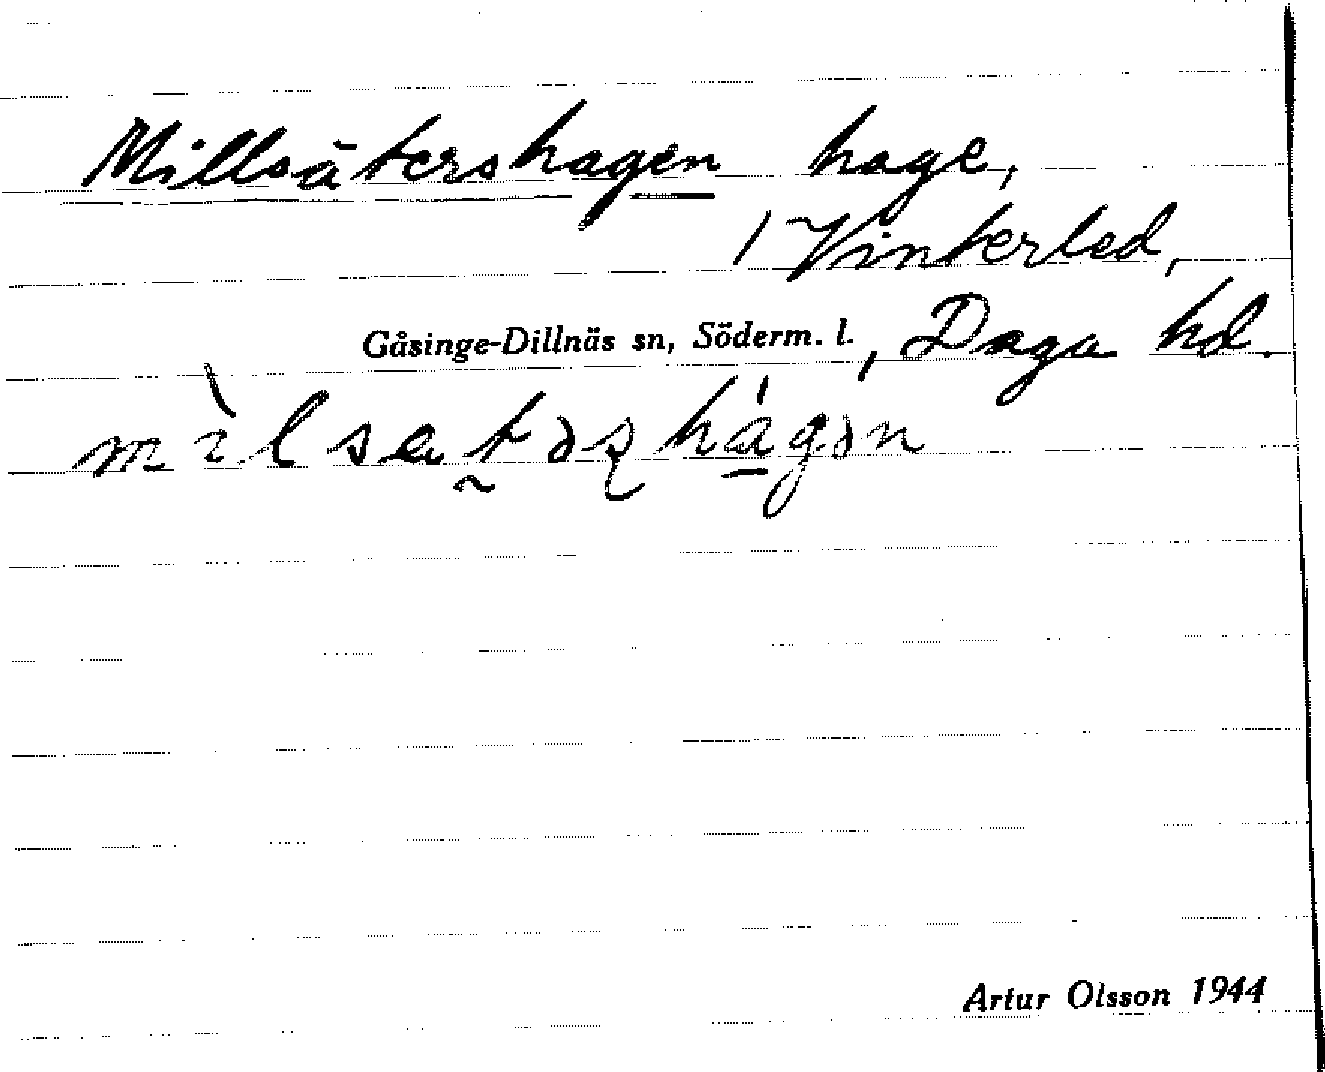 Millsätershagen hage,
/ Vinterled,
Gåsinge-Dillnäs sn, Söderm. l., Daga hd.
mìlsatəʂhágən
Artur Olsson 1944